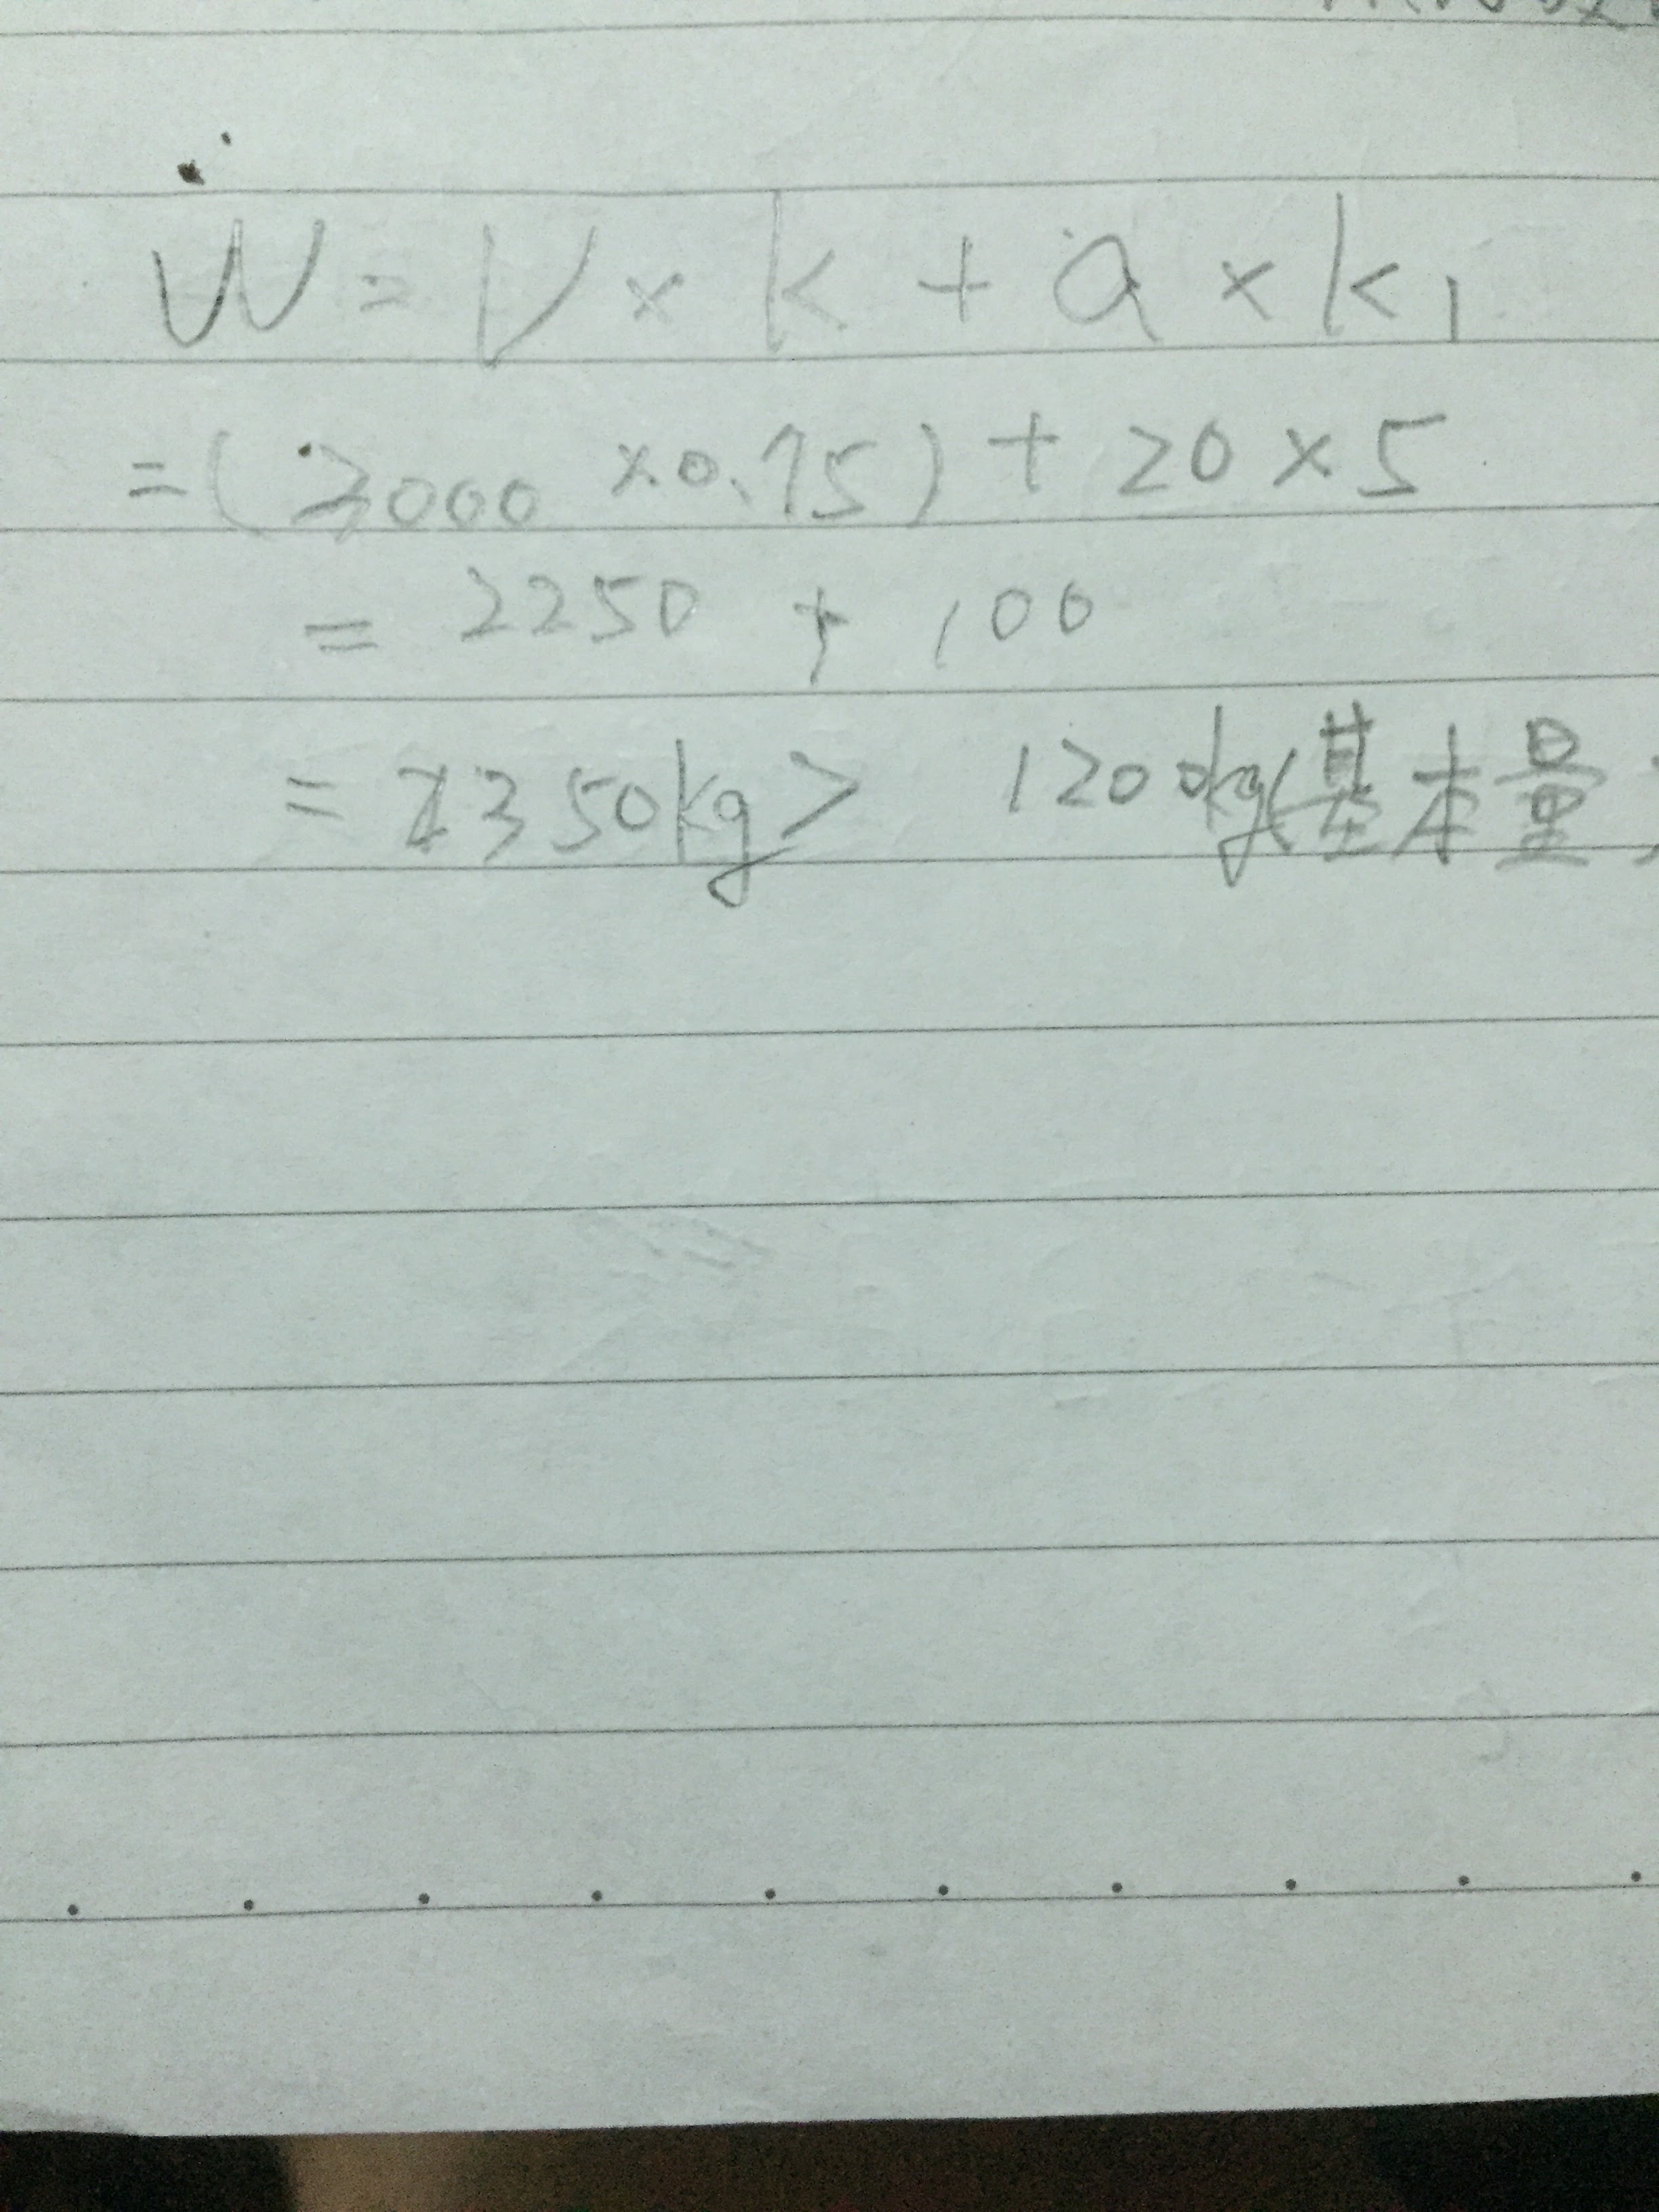 W = V × k + a × k1
= (3000 × 0.75) + 20 × 5
= 2250 + 100
= 2350kg > 1200kg(基本量)